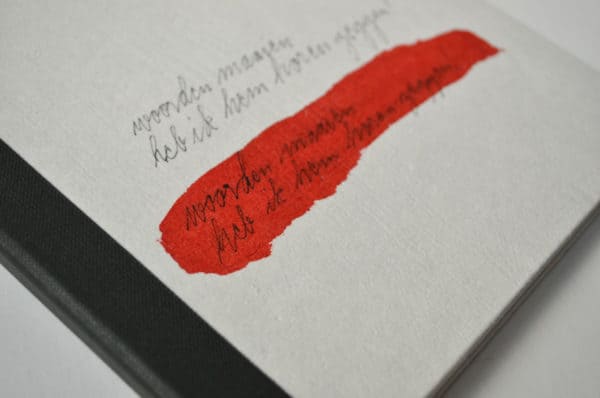 woorden maaien
heb ik hem horen zeggen
woorden maaien
heb ik hem horen zeggen